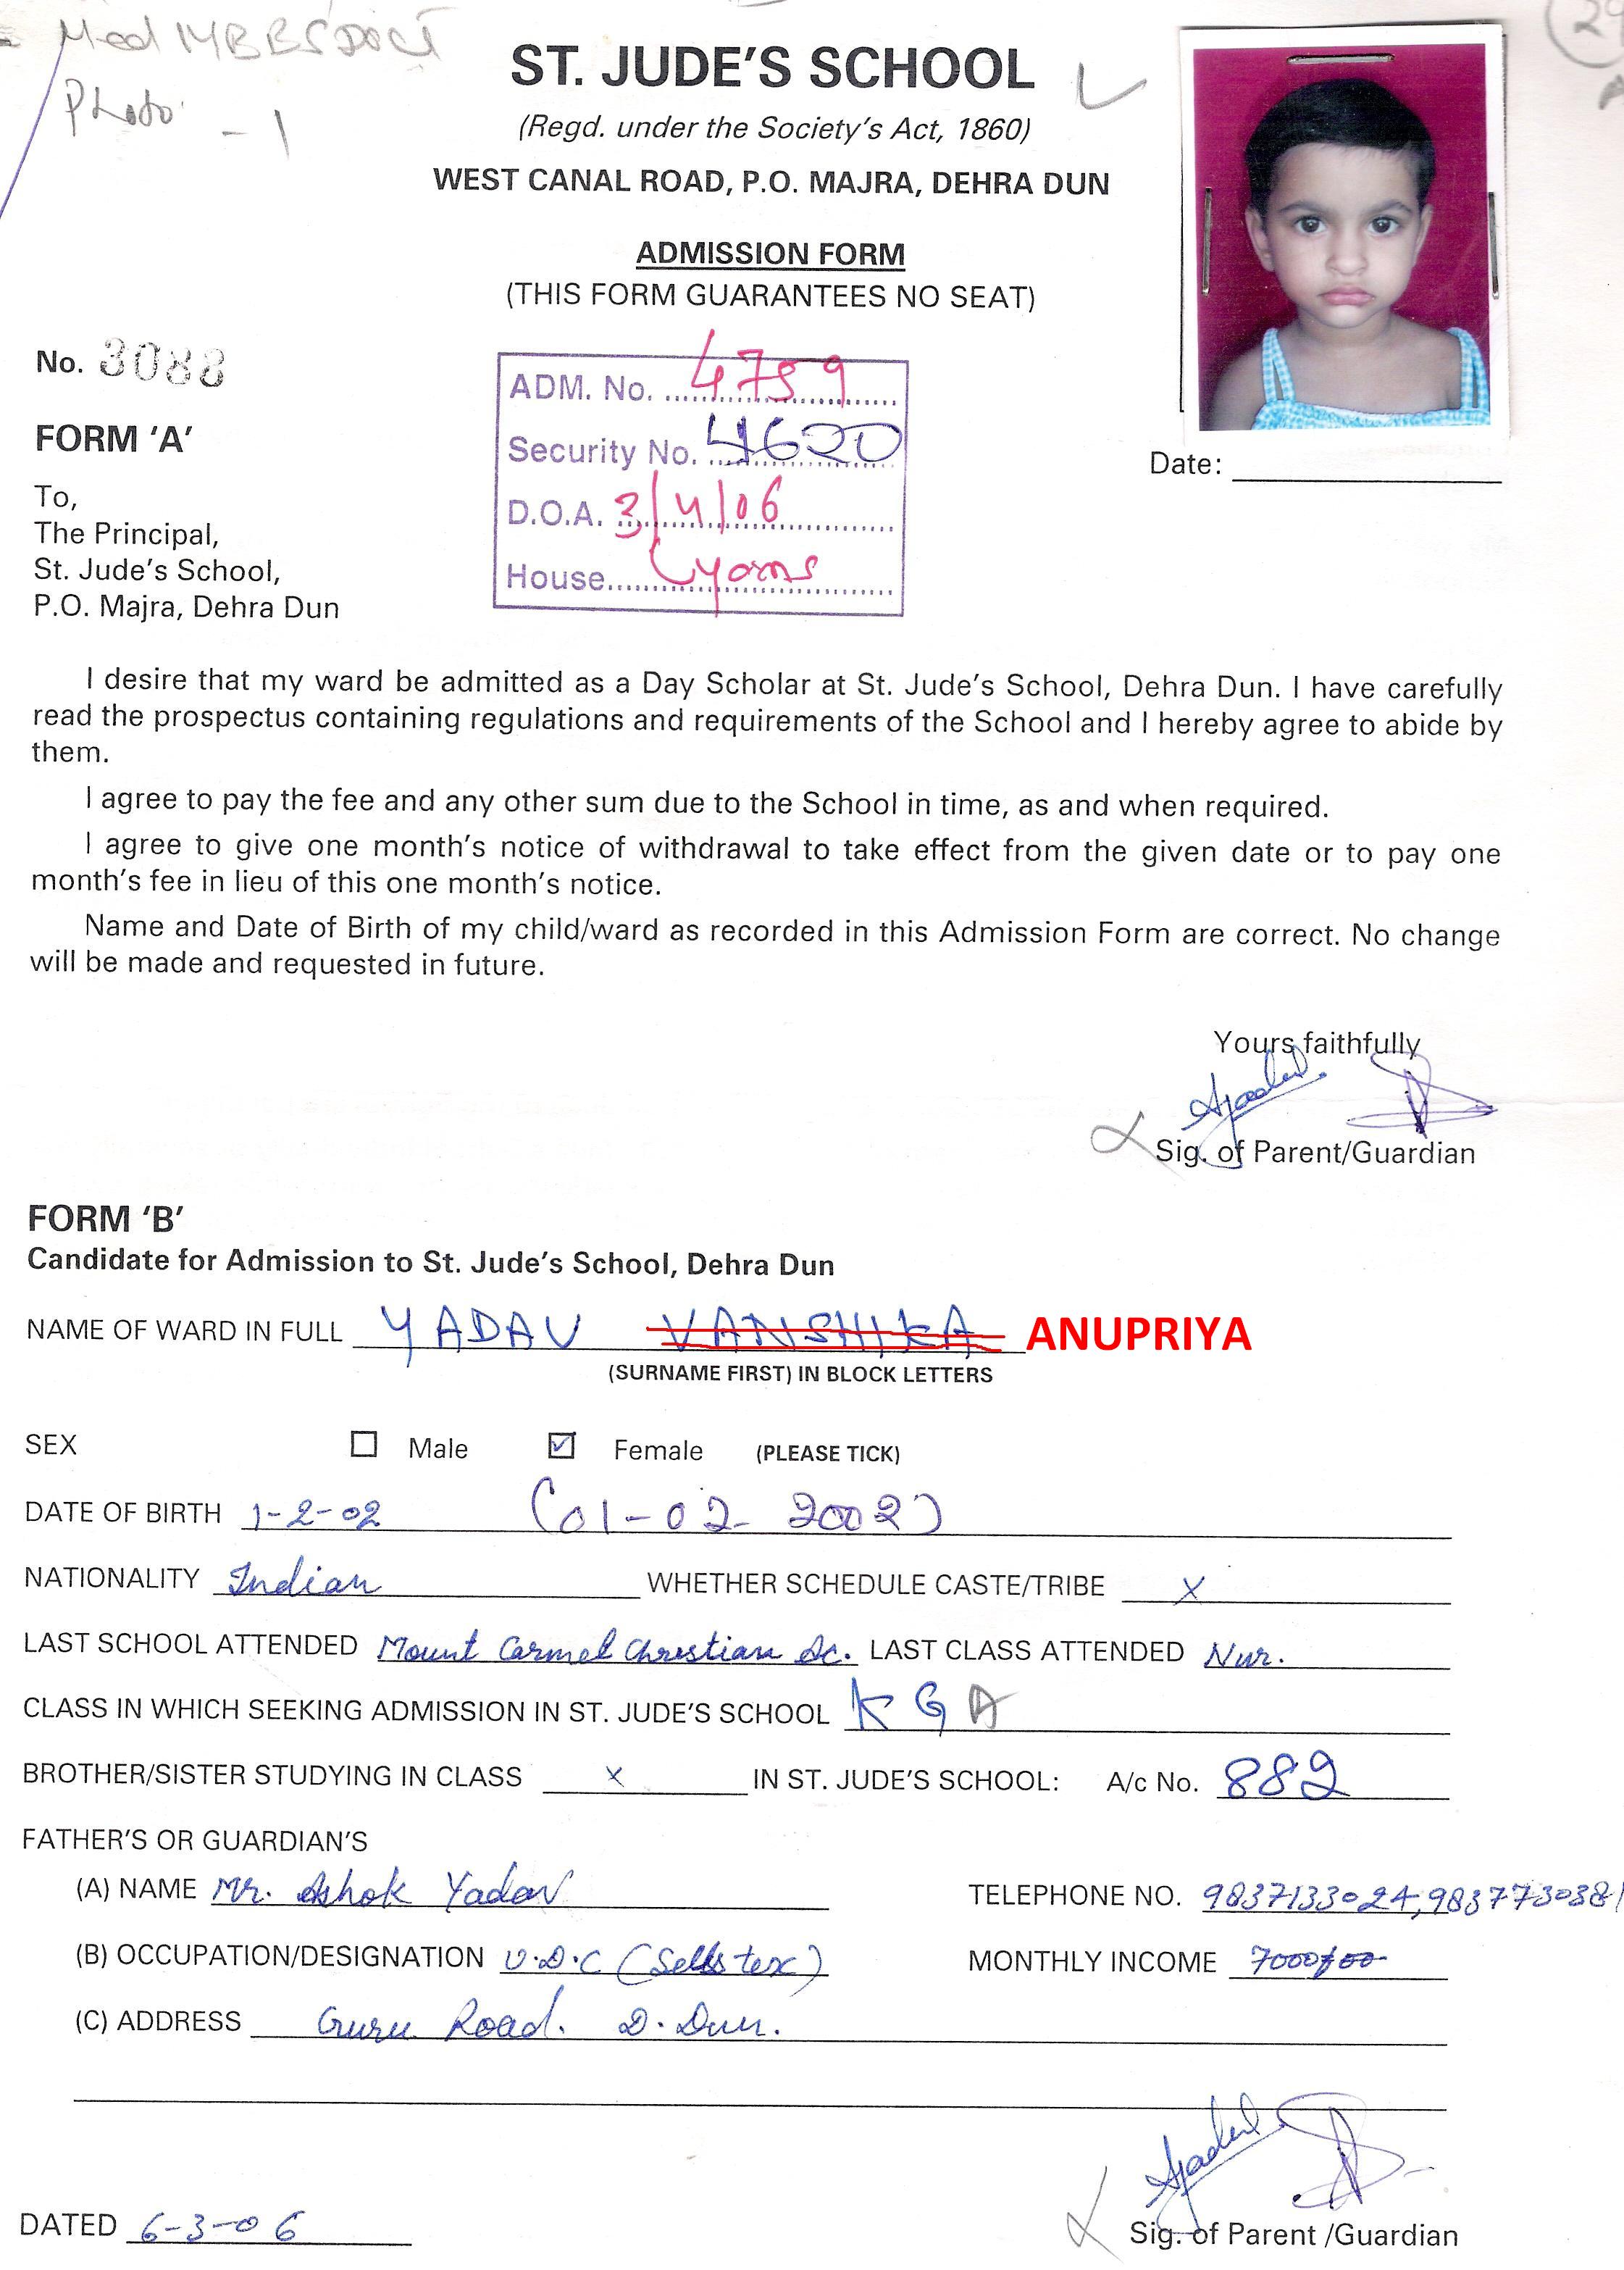 Photo - 1
ST. JUDE'S SCHOOL
(Regd. under the Society's Act, 1860)
WEST CANAL ROAD, P.O. MAJRA, DEHRA DUN
ADMISSION FORM
(THIS FORM GUARANTEES NO SEAT)
No. 3088
ADM. No. 4759
Security No. 4620
D.O.A. 3/4/06
House
Date:
FORM 'A'
To,
The Principal,
St. Jude's School,
P.O. Majra, Dehra Dun
I desire that my ward be admitted as a Day Scholar at St. Jude's School, Dehra Dun. I have carefully
read the prospectus containing regulations and requirements of the School and I hereby agree to abide by
them.
I agree to pay the fee and any other sum due to the School in time, as and when required.
I agree to give one month's notice of withdrawal to take effect from the given date or to pay one
month's fee in lieu of this one month's notice.
Name and Date of Birth of my child/ward as recorded in this Admission Form are correct. No change
will be made and requested in future.
Yours faithfully
Sig. of Parent/Guardian
FORM 'B'
Candidate for Admission to St. Jude's School, Dehra Dun
NAME OF WARD IN FULL YADAV VANSHIKA ANUPRIYA
(SURNAME FIRST) IN BLOCK LETTERS
SEX Male Female (PLEASE TICK)
DATE OF BIRTH 1-2-02 (01-02-2002)
NATIONALITY Indian WHETHER SCHEDULE CASTE/TRIBE X
LAST SCHOOL ATTENDED Mount Carmel Christian Sc. LAST CLASS ATTENDED Nur.
CLASS IN WHICH SEEKING ADMISSION IN ST. JUDE'S SCHOOL K G A
BROTHER/SISTER STUDYING IN CLASS X IN ST. JUDE'S SCHOOL: A/c No. 882
FATHER'S OR GUARDIAN'S
(A) NAME Mr. Ashok Yadav TELEPHONE NO. 9837133024, 9837730381
(B) OCCUPATION/DESIGNATION U.D.C (Sells tex) MONTHLY INCOME 7000/00
(C) ADDRESS Guru Road. D. Dun.
DATED 6-3-06
Sig. of Parent /Guardian